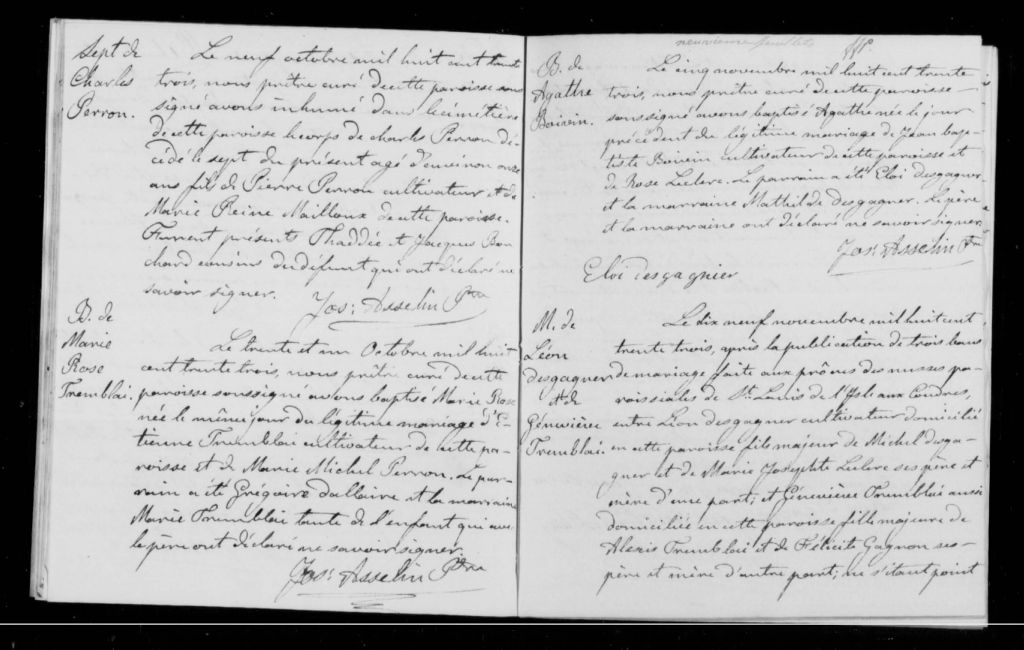 Sept de
Charles
Perron.
Le neuf octobre mil huit cent trente
trois, nous prêtre curé de cette paroisse sous
signé avons inhumé dans le cimétière
de cette paroisse le corps de charles Perron dé-
cédé le sept du présent agé d'environ onze
ans fils de Pierre Perron cultivateur et de
Marie Reine Mailloux de cette paroisse.
Furent présents Thaddée et Jacques Bou
chard cousins du défunt qui ont déclaré ne
savoir signer.
Jos: Asselin Ptre
B. de
Marie
Rose
Tremblai.
Le trente et un Octobre mil huit
cent trente trois, nous prêtre curé de cette
paroisse soussigné avons baptisé Marie Rose
née le même jour du légitime mariage d'E-
tienne Tremblai cultivateur de cette pa-
roisse et de Marie Michel Perron. Le par-
rain a été Grégoire Dallaire et la marraine
Marie Tremblai tante de l'enfant qui avec
le père ont déclaré ne savoir signer.
Jos: Asselin Ptre
neuvieme feuillet
B. de
Agathe
Boivin.
Le cinq novembre mil huit cent trente
trois, nous prêtre curé de cette paroisse
soussigné avons baptisé Agathe née le jour
précédent du légitime mariage de Jean bap-
tiste Boivin cultivateur de cette paroisse et
de Rose Leclerc. Le parrain a été Eloi desgagner
et la marraine Mathilde desgagner. Le père
et la marraine ont déclaré ne savoir signer
Jos: Asselin Ptre
Eloi desgagnier
M. de
Léon
desgagner
et de
Génevière
Tremblai.
Le dix neuf novembre mil huit cent
trente trois, après la publication de trois bans
de mariage faite aux prônes des messes pa-
roissiales de St. Louis de l'Isle aux Coudres,
entre Léon desgagner cultivateur domicilié
en cette paroisse fils majeur de Michel desga-
gner et de Marie Josephte Leclerc ses père et
mère d'une part; et Génevière Tremblai aussi
domiciliée en cette paroisse fille majeure de
Alexis Tremblai et de Félicité Gagnon ses
père et mère d'autre part; ne s'étant point